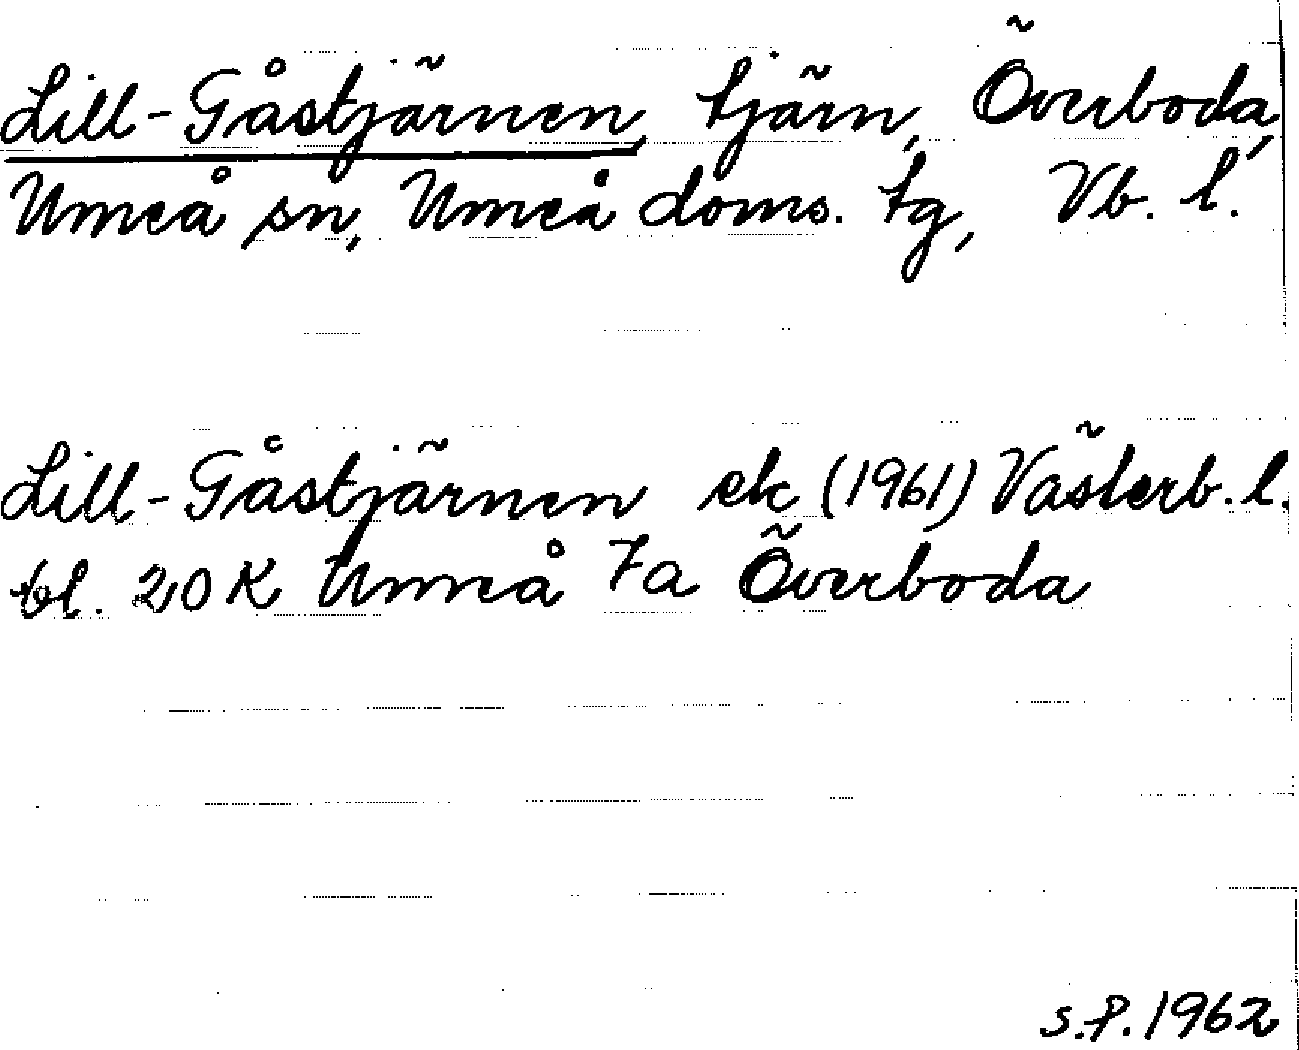 Lill-Gåstjärnen, tjärn, Överboda,
Umeå sn, Umeå doms. tg, Vb. l.
Lill-Gåstjärnen ek (1961) Västerb. l.
bl. 20 K Umeå 7a Överboda
s.f. 1962